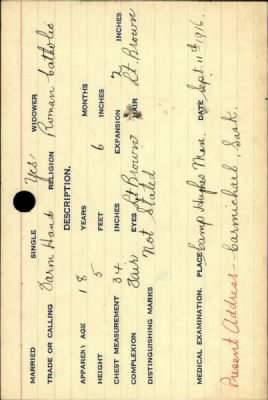 MARRIED SINGLE Yes WIDOWER
TRADE OR CALLING Farm Hand RELIGION Roman Catholic
DESCRIPTION.
APPARENT AGE 18 YEARS MONTHS
HEIGHT 5 FEET 6 INCHES
CHEST MEASUREMENT 34 INCHES EXPANSION 2 INCHES
COMPLEXION Fair EYES Lt Brown HAIR Lt. Brown
DISTINGUISHING MARKS Not Stated
MEDICAL EXAMINATION. PLACE Camp Hughes Man. DATE Sept. 11th 1916.
Present Address - Carmichael, Sask.